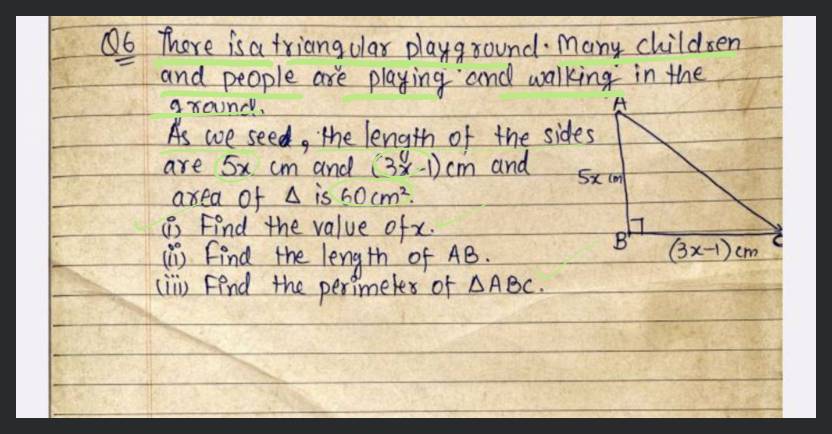 Q6 There is a triangular playground. Many children
and people are playing and walking in the
ground.
As we seed, the length of the sides
are 5x cm and (3x-1) cm and
area of Δ is 60cm².
(i) Find the value of x.
(ii) Find the length of AB.
(iii) Find the perimeter of ΔABC.
A
5x cm
B
C
(3x-1) cm